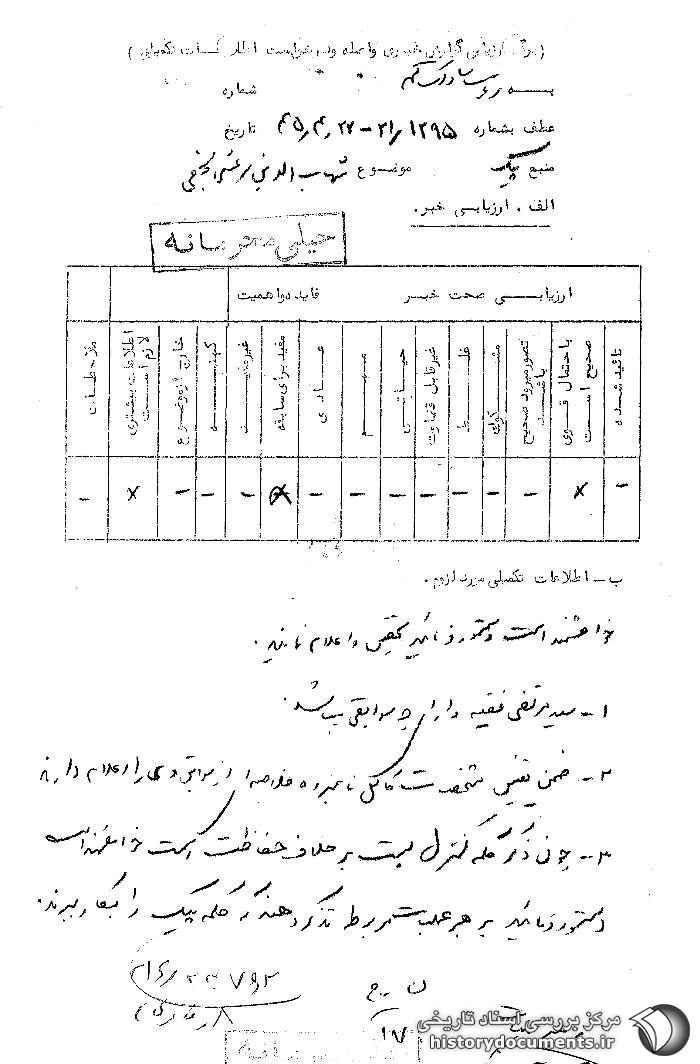 (برگ ارزیابی گزارش خبری واصله و درخواست اطلاعات تکمیلی)
به ریاست ساواک قم
شماره
عطف بشماره ۲۱/۱۲۹۵-۴۵/۴/۲۲ تاریخ
منبع پیک موضوع شهاب الدین مرعشی نجفی
الف. ارزیابی خبر.
خیلی محرمانه
ارزیابی صحت خبر
فایده و اهمیت
تائید شده
باحتمال قوی صحیح است
تصور میرود صحیح باشد
مشکوک
غلط
غیرقابل قضاوت
حیاتی
مهم
عادی
مفید برای سابقه
غیرمفید
کهنه
خارج از موضوع
اطلاعات بیشتری لازم است
ملاحظات
- x - - - - - - - x - - - x -
ب - اطلاعات تکمیلی مورد لزوم.
خواهشمند است دستور فرمائید تحقیق و اعلام نمایند.
۱- سید مرتضی فقیه دارای چه سوابقی میباشد.
۲- ضمن تعیین مشخصات کامل نامبرده خلاصه ای از سوابق وی را اعلام دارند
۳- چون ذکر کلمه کنترل پست بر خلاف حفاظت است خواهشمند است
دستور فرمائید بر هبر عملیات مربوطه تذکر دهند که کلمه پیک را بکار ببرند.
مرکز بررسی اسناد تاریخی
historydocuments.ir